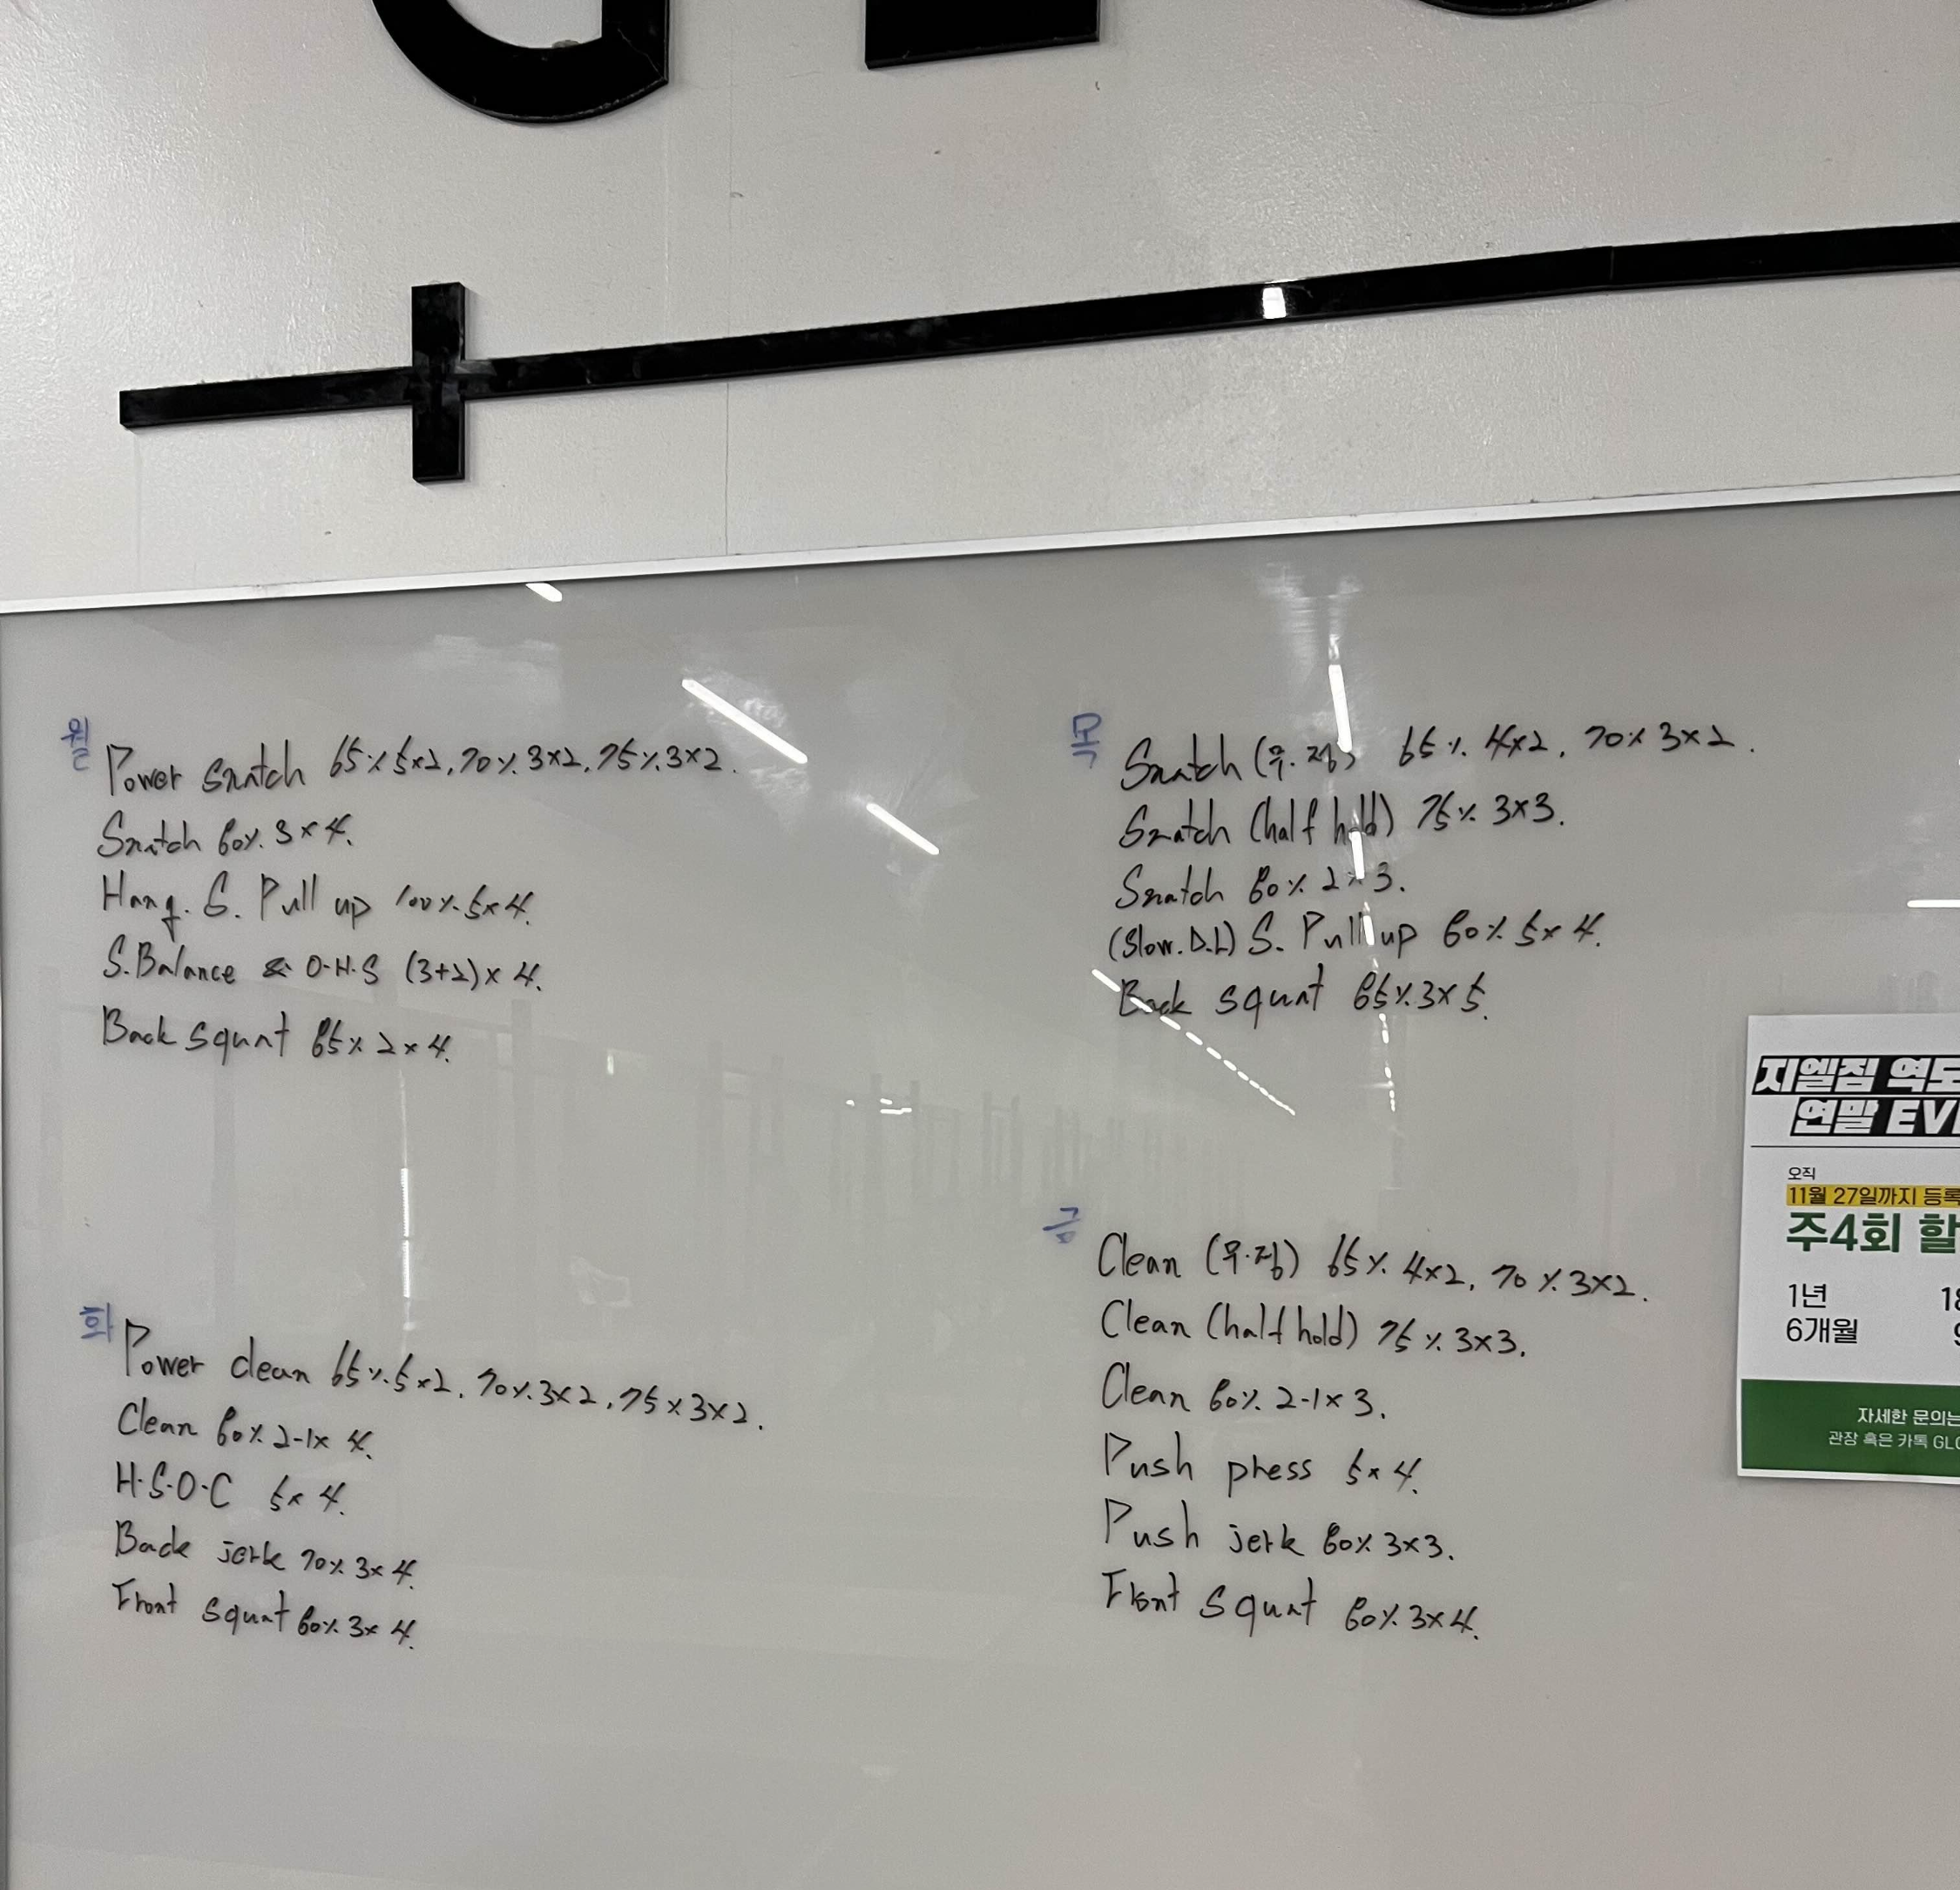 월
Power snatch 65% 5×2, 70% 3×2, 75% 3×2.
Snatch 80% 3×4.
Hang. S. Pull up 100% 5×4.
S.Balance & O.H.S (3+2)×4.
Back squat 85% 2×4.
화
Power clean 65% 5×2, 70% 3×2, 75% 3×2.
Clean 80% 2-1× 4.
H.S.O.C 5× 4.
Back jerk 70% 3×4.
Front squat 80% 3× 4.
목
Snatch (무.정) 65% 4×2, 70% 3×2.
Snatch (half hold) 75% 3×3.
Snatch 80% 2×3.
(Slow. D.L) S. Pull up 80% 5×4.
Back squat 85% 3×5.
금
Clean (무.정) 65% 4×2, 70% 3×2.
Clean (half hold) 75% 3×3.
Clean 80% 2-1×3.
Push press 5×4.
Push jerk 80% 3×3.
Front squat 80% 3×4.
지엘짐 역도
연말
오직
11월 27일까지 등록
주4회
1년
6개월
자세한 문의는
관장 혹은 카톡